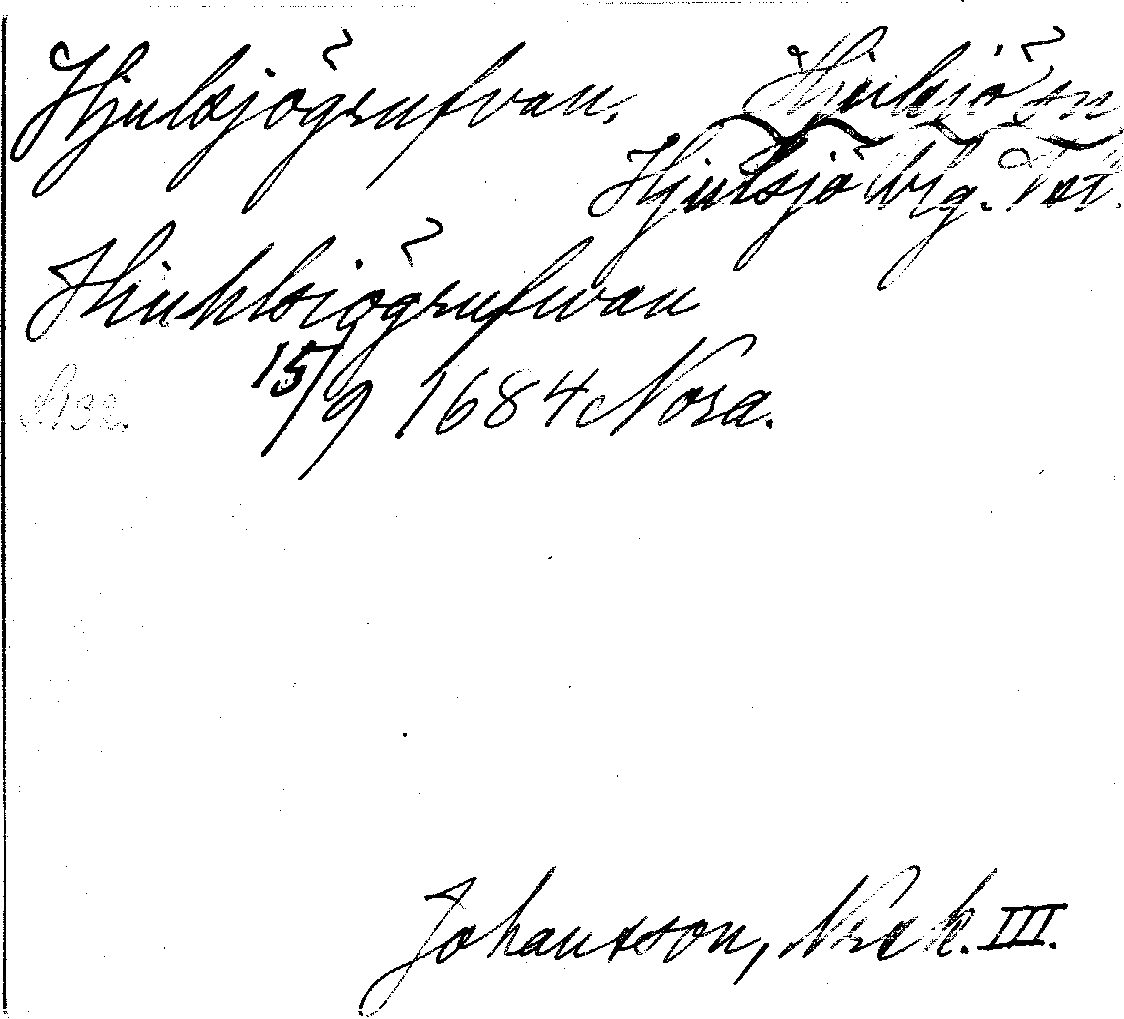 Hjulsjögrufvan. Hjulsjö sn
Hjulsjö blg. Vstl.
Hiuhlsiögrufwan
15/9 1684 Nora.
A 32.
Johansson, Norak. III.